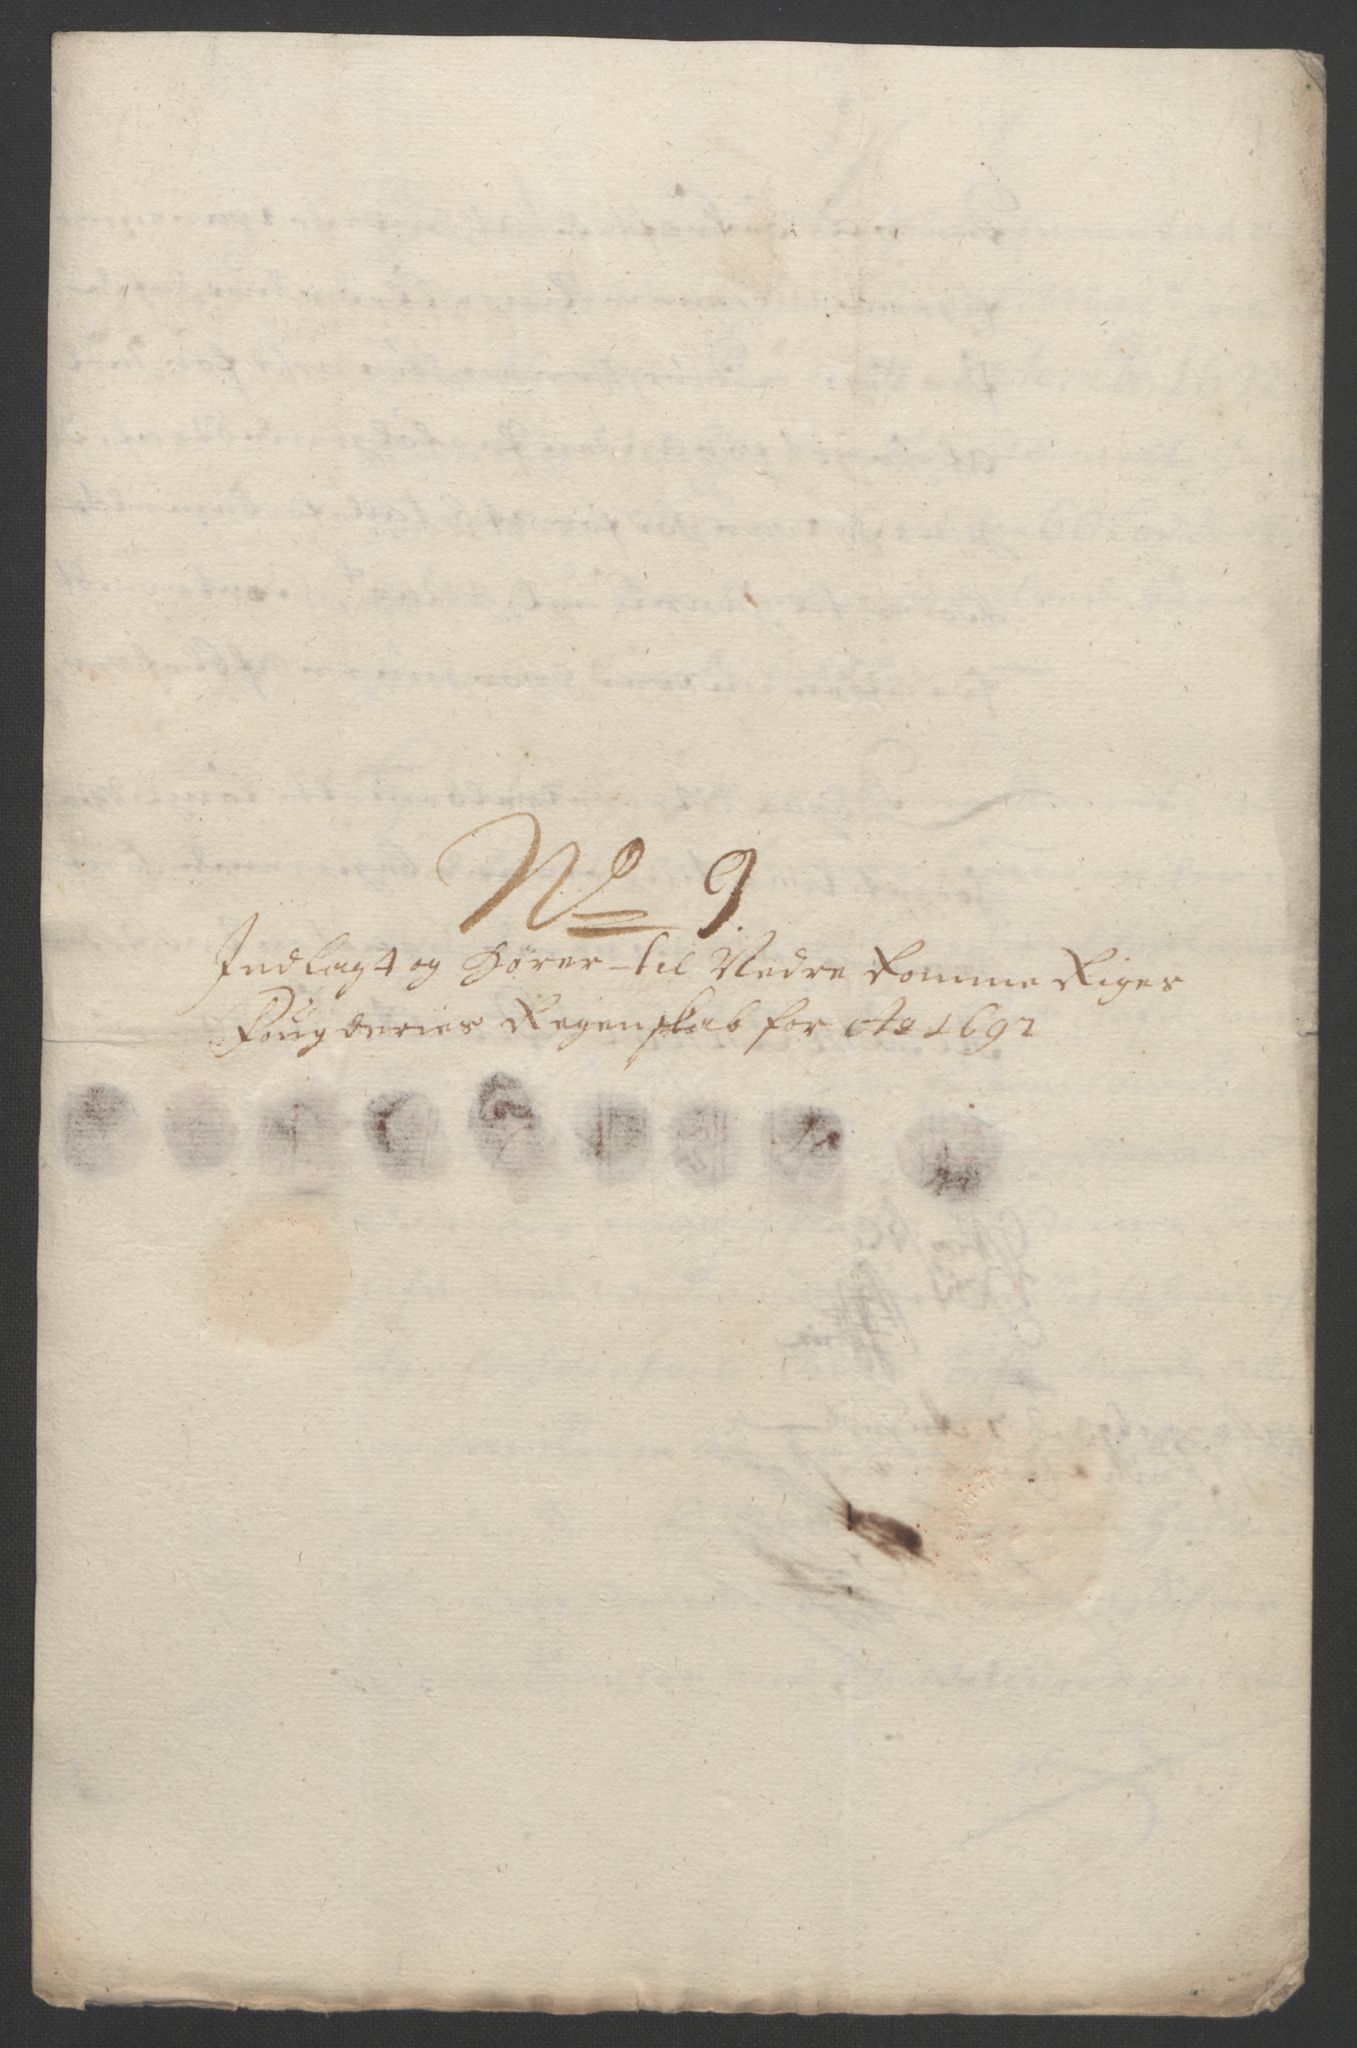 No 9
Indlagt og Hører til Nedre Romme Riges
Fougderies Regenskab for Ao 1692